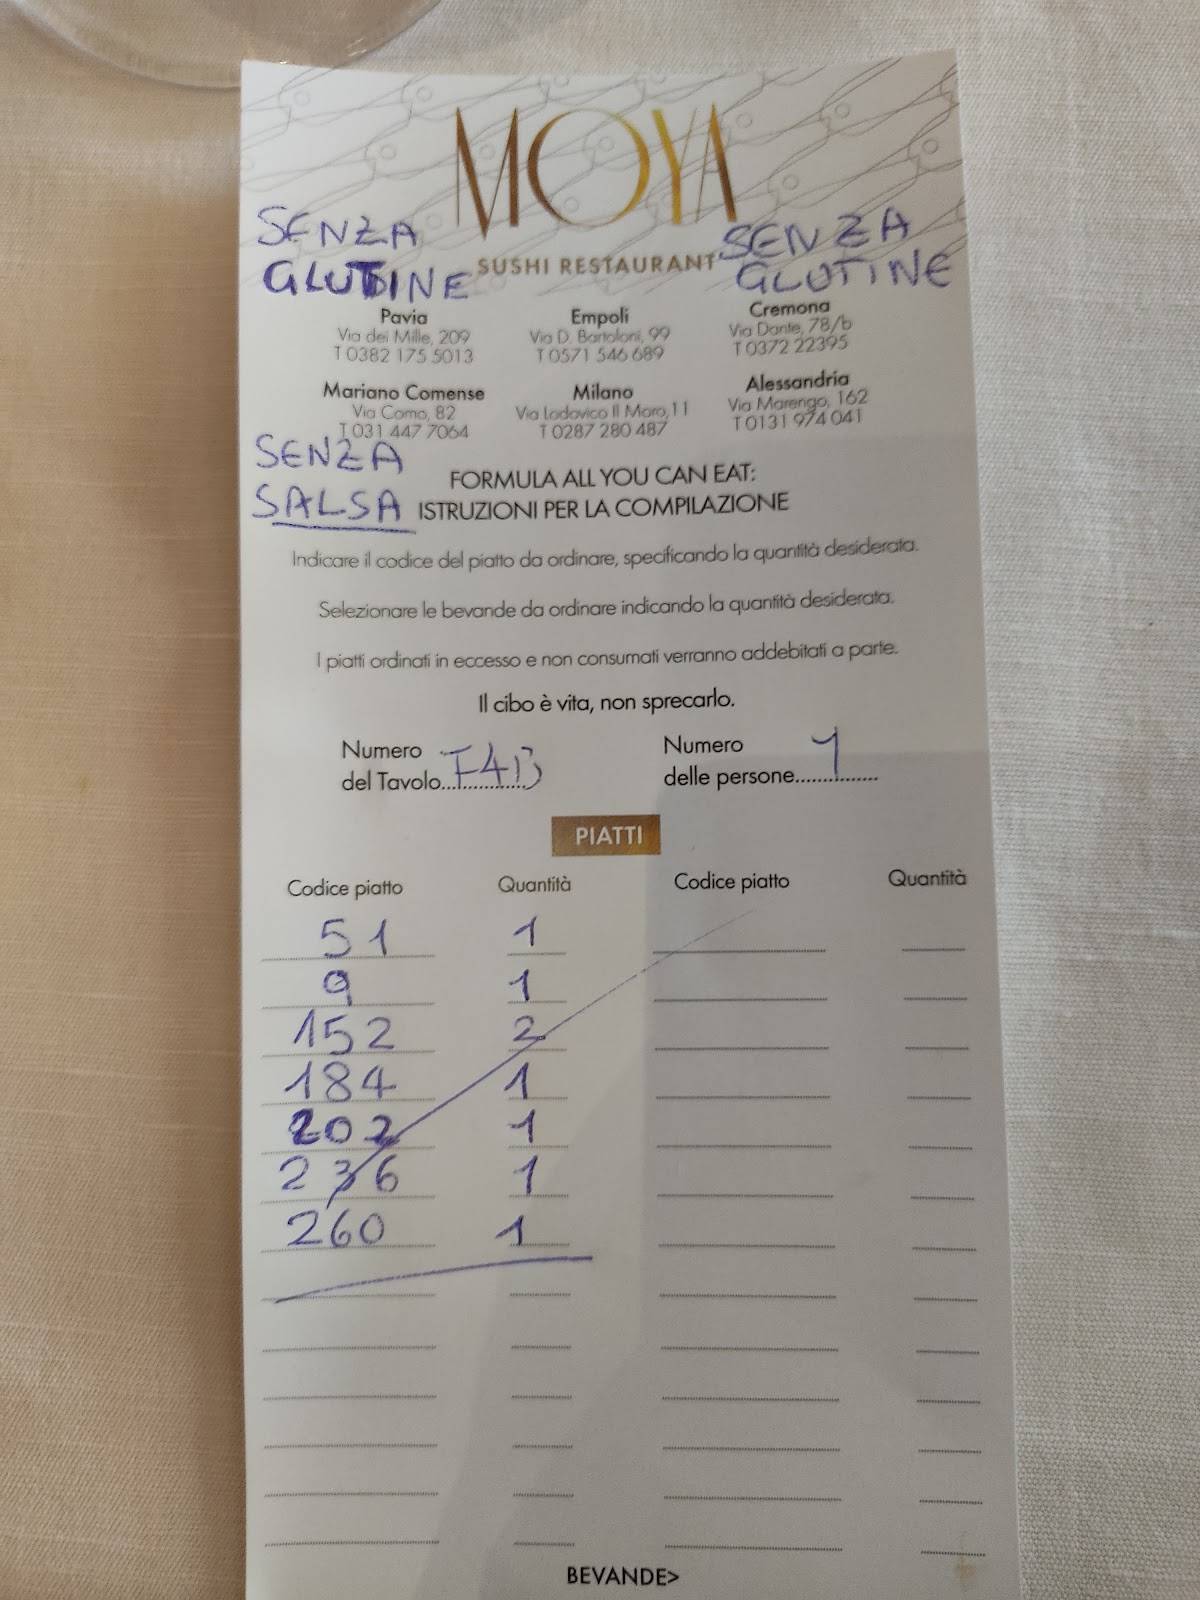 MOYA
SENZA
GLUTINE
SUSHI RESTAURANT
SENZA
GLUTINE
Pavia
Via dei Mille, 209
T 0382 175 5013
Empoli
Via D. Bartoloni, 99
T 0571 546 689
Cremona
Via Dante, 78/b
T 0372 22395
Mariano Comense
Via Como, 82
T 031 447 7064
Milano
Via Lodovico Il Moro, 11
T 0287 280 487
Alessandria
Via Marengo, 162
T 0131 974 041
SENZA
SALSA
FORMULA ALL YOU CAN EAT:
ISTRUZIONI PER LA COMPILAZIONE
Indicare il codice del piatto da ordinare, specificando la quantità desiderata.
Selezionare le bevande da ordinare indicando la quantità desiderata.
I piatti ordinati in eccesso e non consumati verranno addebitati a parte.
Il cibo è vita, non sprecarlo.
Numero
del Tavolo
Numero
delle persone 1
PIATTI
Codice piatto Quantità Codice piatto Quantità
51 1
9 1
152 2
184 1
202 1
236 1
260 1
BEVANDE>